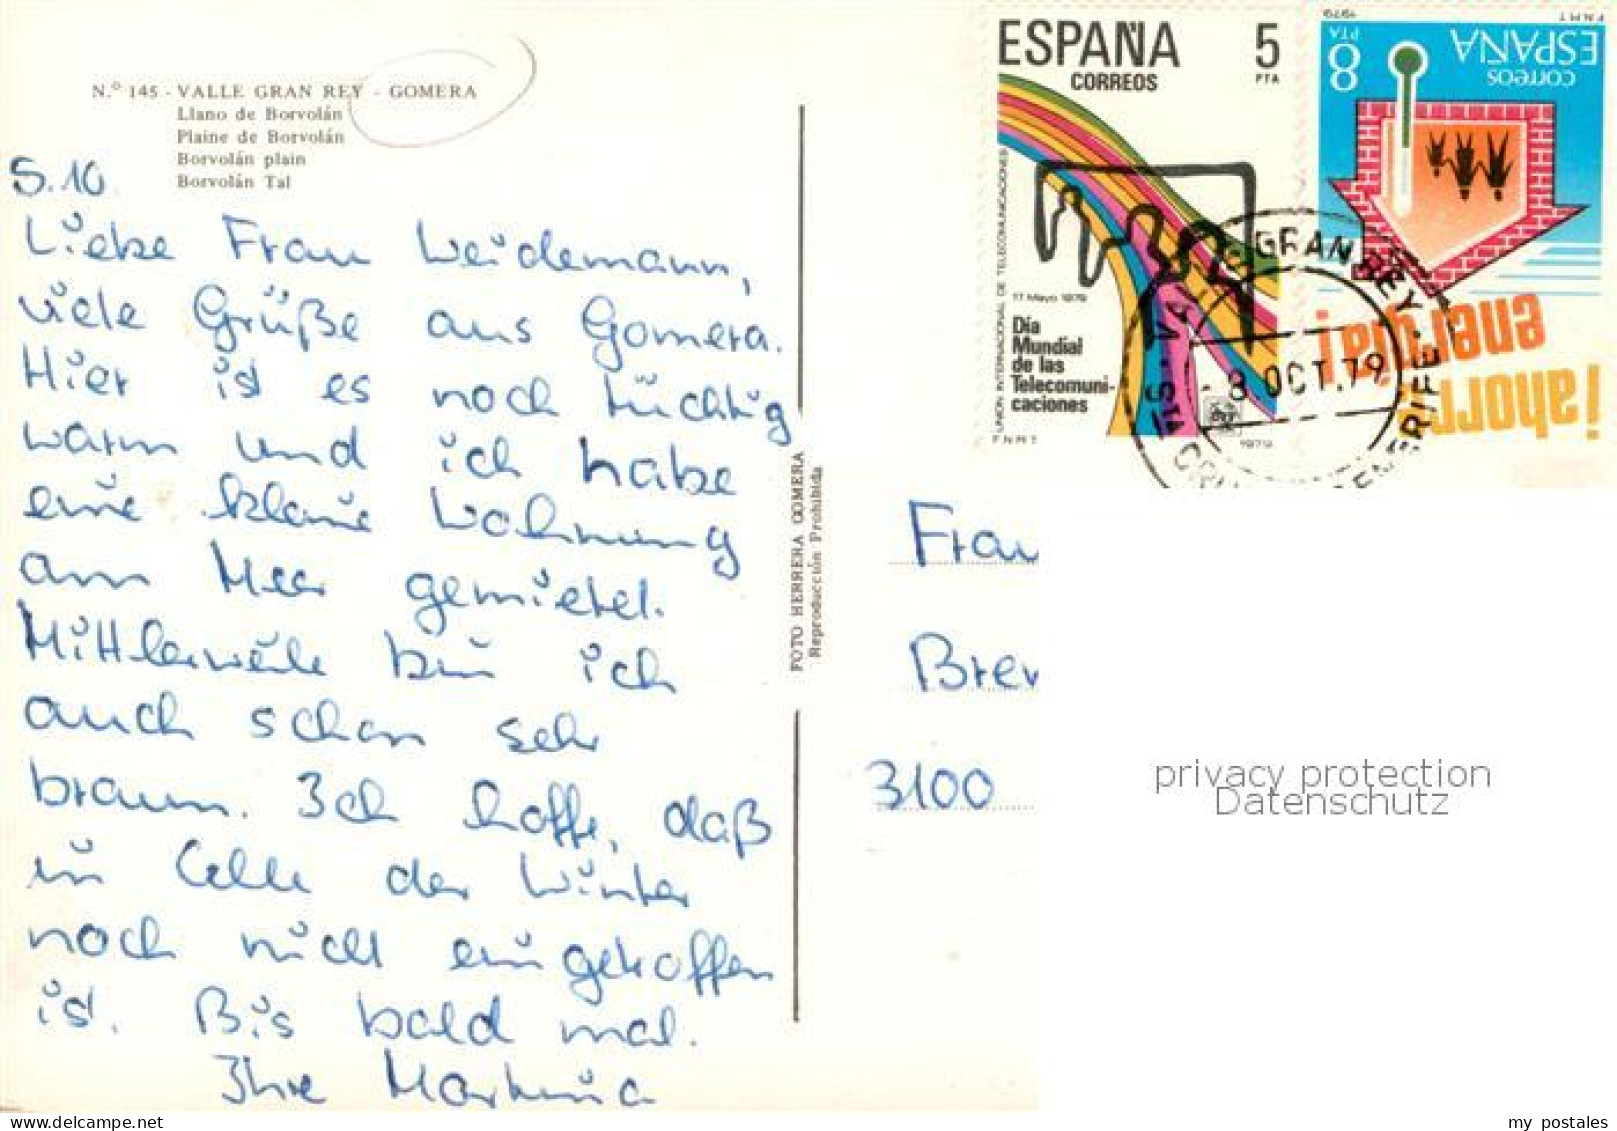 N.º 145 - VALLE GRAN REY - GOMERA
Llano de Borvolán
Plaine de Borvolán
Borvolán plain
Borvolán Tal
5.10.
Liebe Frau Weidemann,
viele Grüße aus Gomera.
Hier ist es noch tüchtig
warm und ich habe
eine kleine Wohnung
am Meer gemietet.
Mittlerweile bin ich
auch schon sehr
braun. Ich hoffe, daß
in Celle der Winter
noch nicht eingetroffen
ist. Bis bald mal.
Ihre Martina
FOTO HERRERA GOMERA
Reproducción Prohibida
ESPAÑA 5
CORREOS PTA
UNIÓN INTERNACIONAL DE TELECOMUNICACIONES
17 Mayo 1979
Día
Mundial
de las
Telecomuni-
caciones
F.N.M.T. 1979
F.N.M.T. 1979
ESPAÑA 8
correos PTA
¡ahorr
energía!
VALLE GRAN REY
8 OCT. 79
TENERIFE
Frau
3100
privacy protection
Datenschutz
my postales